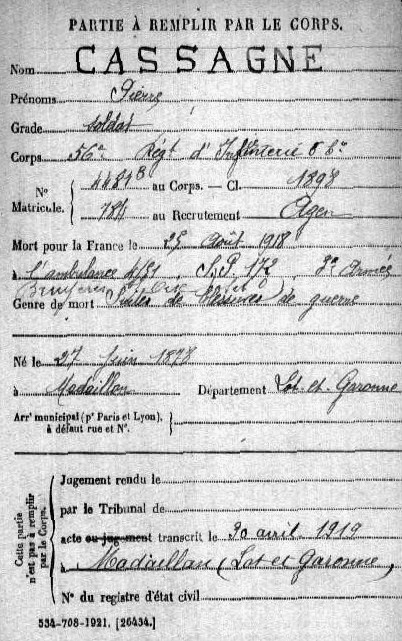 PARTIE À REMPLIR PAR LE CORPS.
Nom CASSAGNE
Prénoms Pierre
Grade soldat
Corps 56e Régt d'Infanterie
N° Matricule. 44848 au Corps. — Cl. 1898
784 au Recrutement Agen
Mort pour la France le 25 Août 1918
à l'ambulance 4/51, S.P. 172, 3e Armée
Genre de mort Suites de blessures de guerre
Né le 27 Juin 1878
à Madaillan Département Lot-et-Garonne
Arrt municipal (pr Paris et Lyon),
à défaut rue et N°.
Cette partie n'est pas à remplir par le Corps.
Jugement rendu le
par le Tribunal de
acte ou jugement transcrit le 30 avril 1919
à Madaillan (Lot et Garonne)
N° du registre d'état civil
534-708-1921. [26434.]